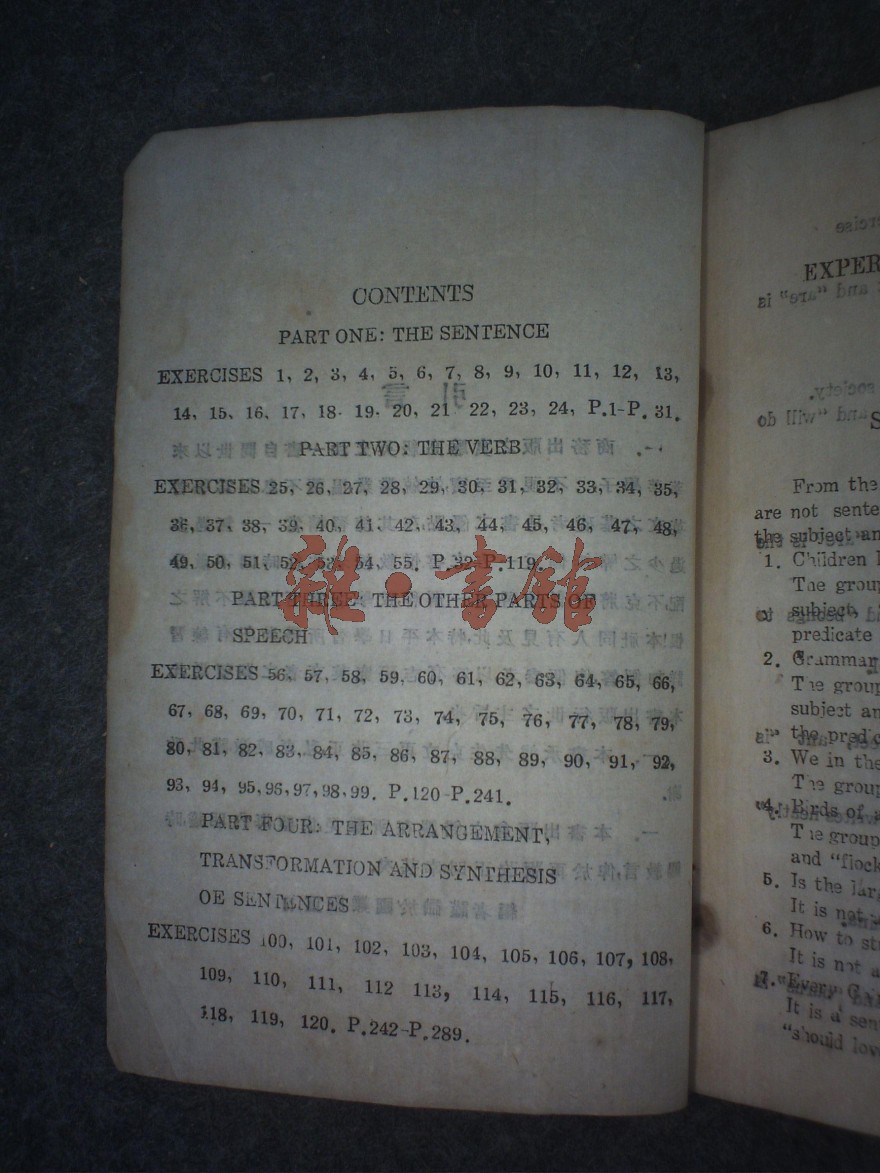 CONTENTS
PART ONE: THE SENTENCE
EXERCISES 1, 2, 3, 4, 5, 6, 7, 8, 9, 10, 11, 12, 13,
14, 15, 16, 17, 18· 19· 20, 21 22, 23, 24, P.1-P. 31.
PART TWO: THE VERB
EXERCISES 25, 26, 27, 28, 29, 30, 31, 32, 33, 34, 35,
36, 37, 38, 39, 40, 41, 42, 43, 44, 45, 46, 47, 48,
49, 50, 51, 52, 53, 54, 55. P.32-P.119.
雜·書館
PART THREE: THE OTHER PARTS OF
SPEECH
EXERCISES 56, 57, 58, 59, 60, 61, 62, 63, 64, 65, 66,
67, 68, 69, 70, 71, 72, 73, 74, 75, 76, 77, 78, 79,
80, 81, 82, 83, 84, 85, 86, 87, 88, 89, 90, 91, 92,
93, 94, 95,96,97,98,99. P.120-P.241.
PART FOUR: THE ARRANGEMENT,
TRANSFORMATION AND SYNTHESIS
OE SENTENCES
EXERCISES 100, 101, 102, 103, 104, 105, 106, 107, 108,
109, 110, 111, 112 113, 114, 115, 116, 117,
118, 119, 120. P.242-P.289.
EXPER
S
From the
are not sente
the subject an
1. Children
The group
subject,
predicate
2. Grammar
The group
subject an
the predic
3. We in the
The group
4. Birds of a
The group
and "flock
5. Is the larg
It is not
6. How to st
It is not a
7. Every
It is a sen
"should lov